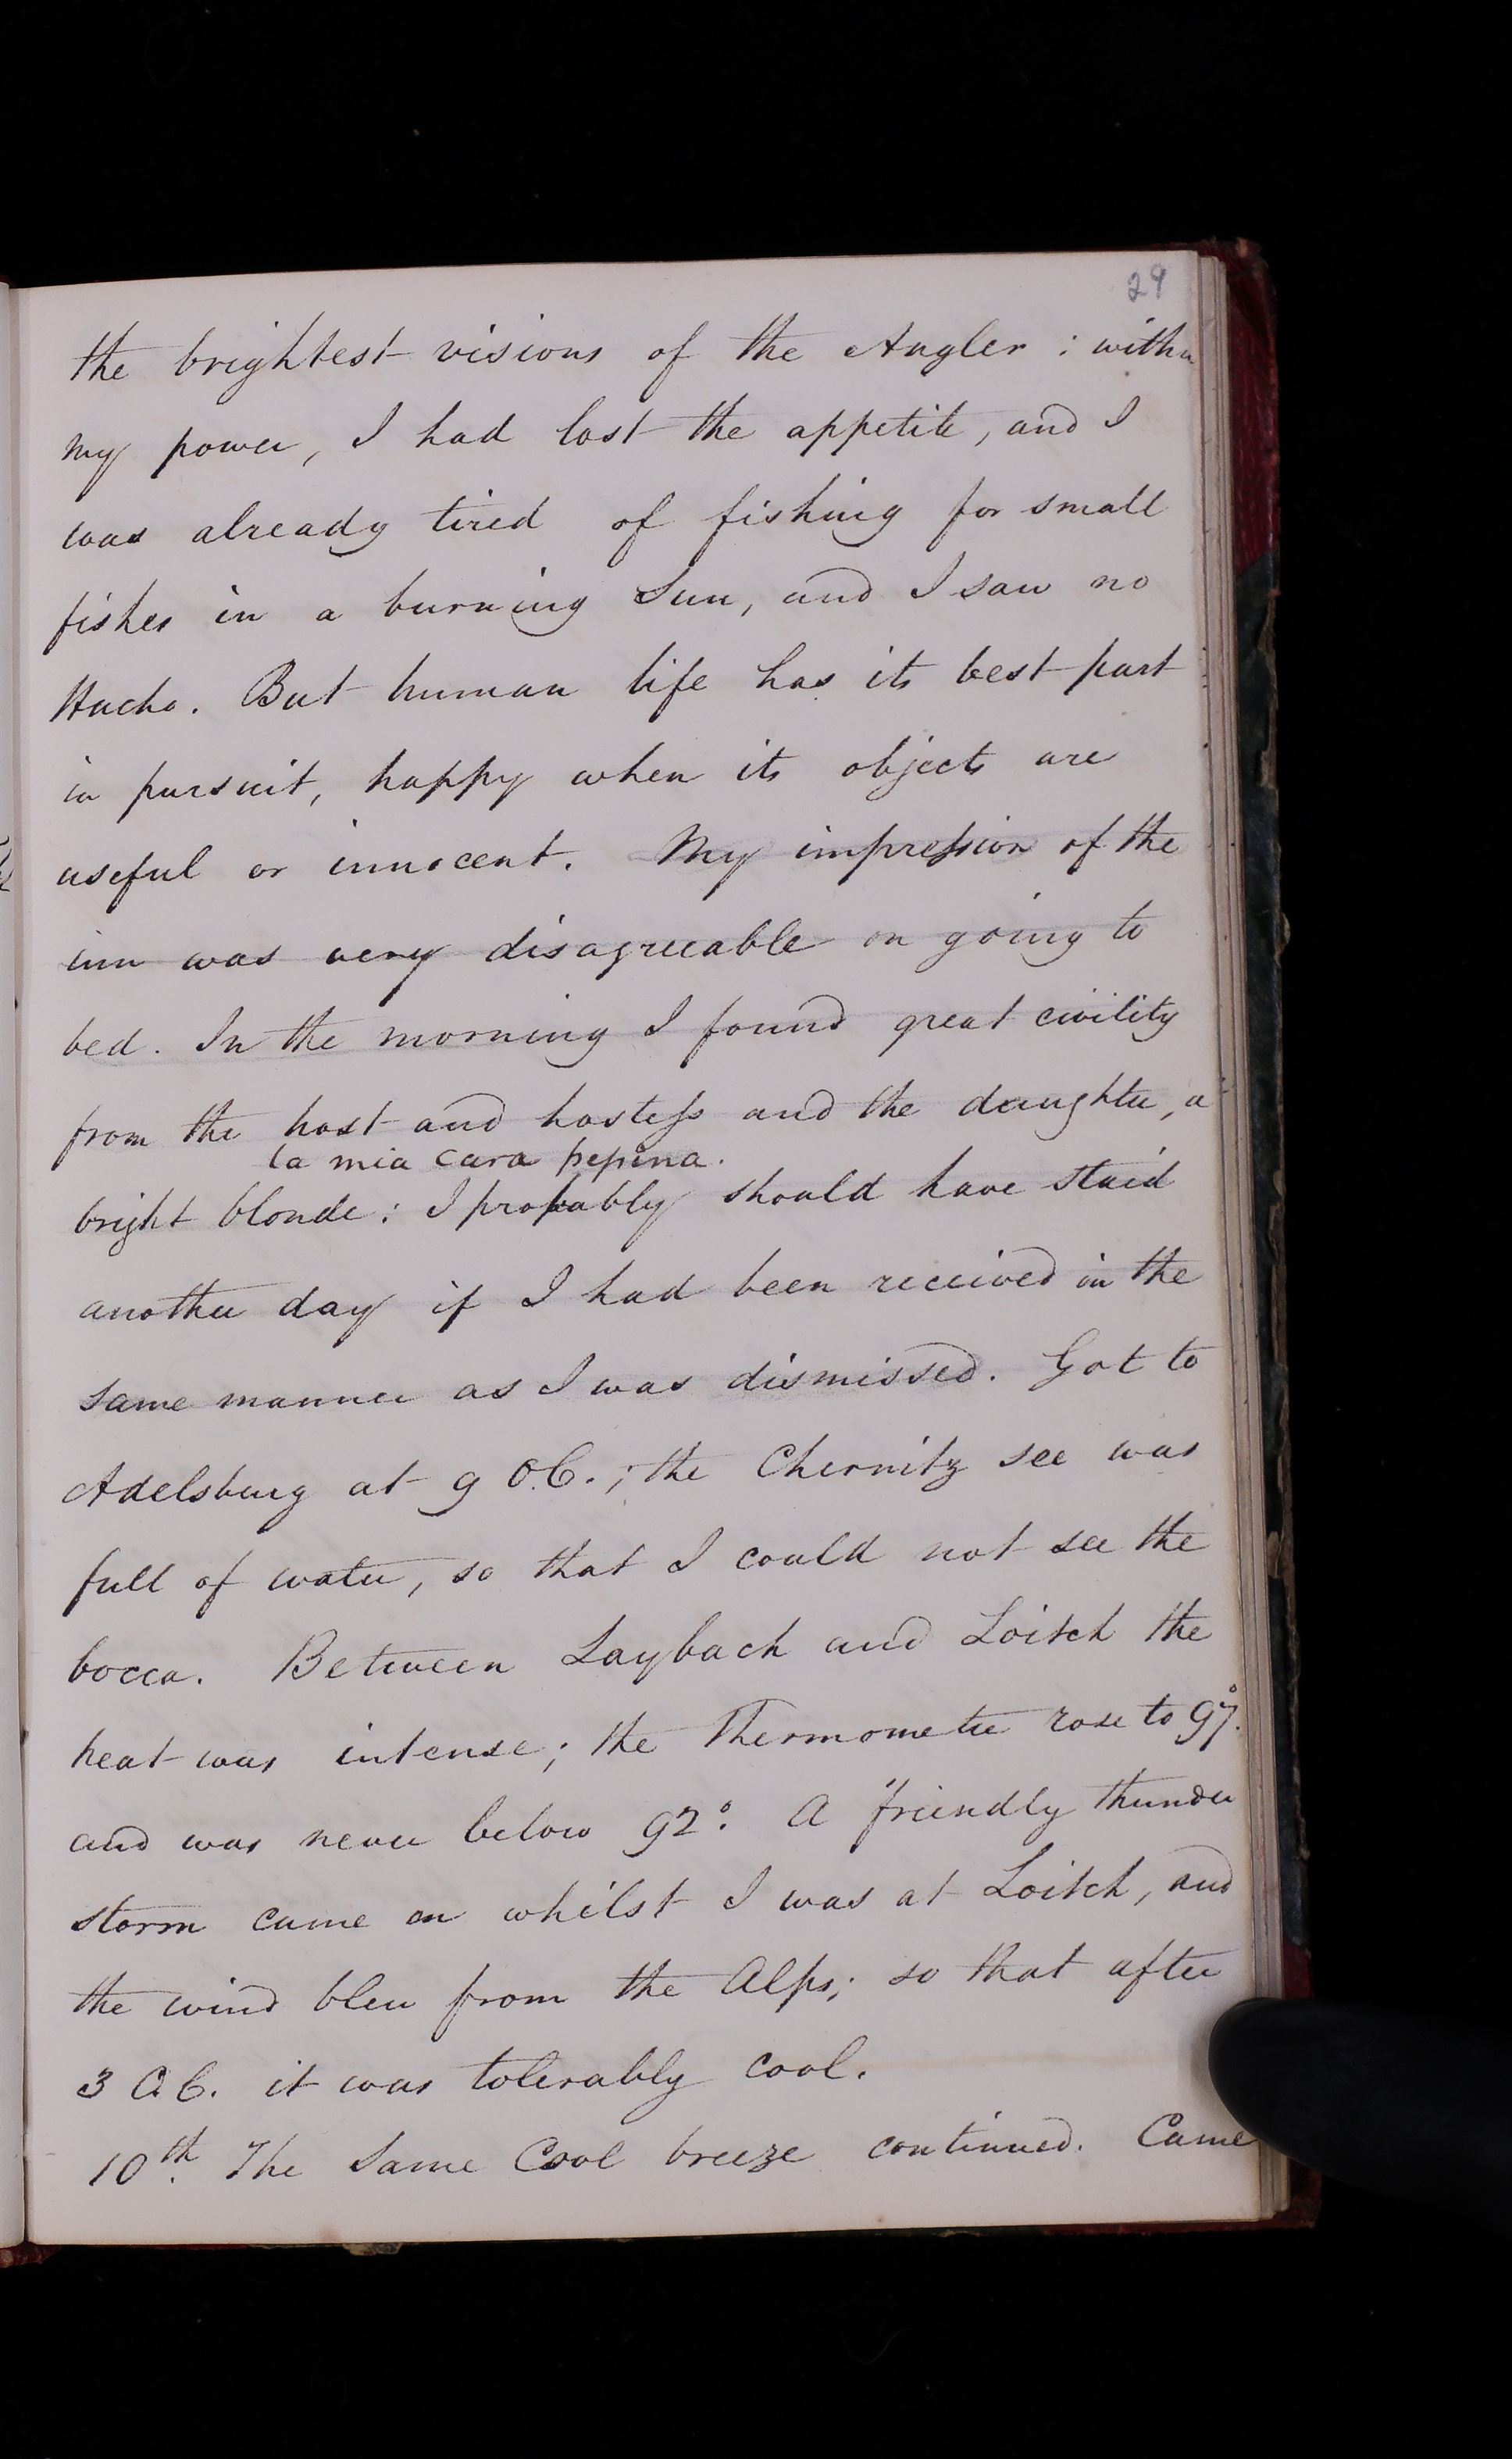 29
the brightest visions of the Angler: within
my power, I had lost the appetite, and I
was already tired of fishing for small
fishes in a burning Sun, and I saw no
Hucho. But human life has its best part
in pursuit, happy when its objects are
useful or innocent. My impression of the
inn was very disagreeable on going to
bed. In the morning I found great civility
from the host and hostess and the daughter, a
la mia cara pepina.
bright blonde: I probably should have staid
another day if I had been received in the
same manner as I was dismissed. Got to
Adelsburg at 9 O.C.; the Chernitz see was
full of water, so that I could not see the
bocca. Between Laybach and Loitch the
heat was intense; the Thermometer rose to 97°.
and was never below 92°. A friendly thunder
storm came on whilst I was at Loitch, and
the wind blew from the Alps; so that after
3 O.C. it was tolerably cool.
10th. The Same Cool breeze continued. Came